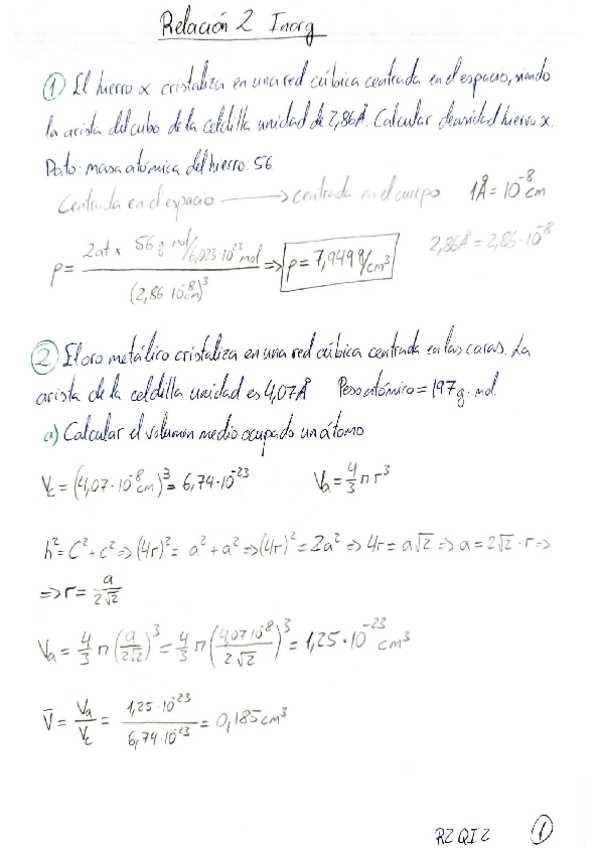 Relación 2 Inorg
① El hierro α cristaliza en una red cúbica centrada en el espacio, siendo
la arista del cubo de la celdilla unidad de 2,86Å. Calcular densidad hierro α.
Dato: masa atómica del hierro: 56
Centrada en el espacio ⟶ centrada en el cuerpo 1Å = 10⁻⁸ cm
ρ = 2at x 56 g mol/6,023·10²³ mol / (2,86 10⁻⁸cm)³ ⇒ ρ = 7,949 g/cm³ 2,86Å = 2,86·10⁻⁸
② El oro metálico cristaliza en una red cúbica centrada en las caras. La
arista de la celdilla unidad es 4,07Å Peso atómico = 197 g · mol
a) Calcular el volumen medio ocupado un átomo
Vc = (4,07·10⁻⁸ cm)³ = 6,74·10⁻²³ Va = 4/3 π r³
h² = c² + c² ⇒ (4r)² = a² + a² ⇒ (4r)² = 2a² ⇒ 4r = a√2 ⇒ a = 2√2 · r ⇒
⇒ r = a/2√2
Va = 4/3 π (a/2√2)³ = 4/3 π (4,07 10⁻⁸/2√2)³ = 1,25·10⁻²³ cm³
V̄ = Va/Vc = 1,25·10⁻²³/6,74·10⁻²³ = 0,185 cm³
R2 QI 2 ①